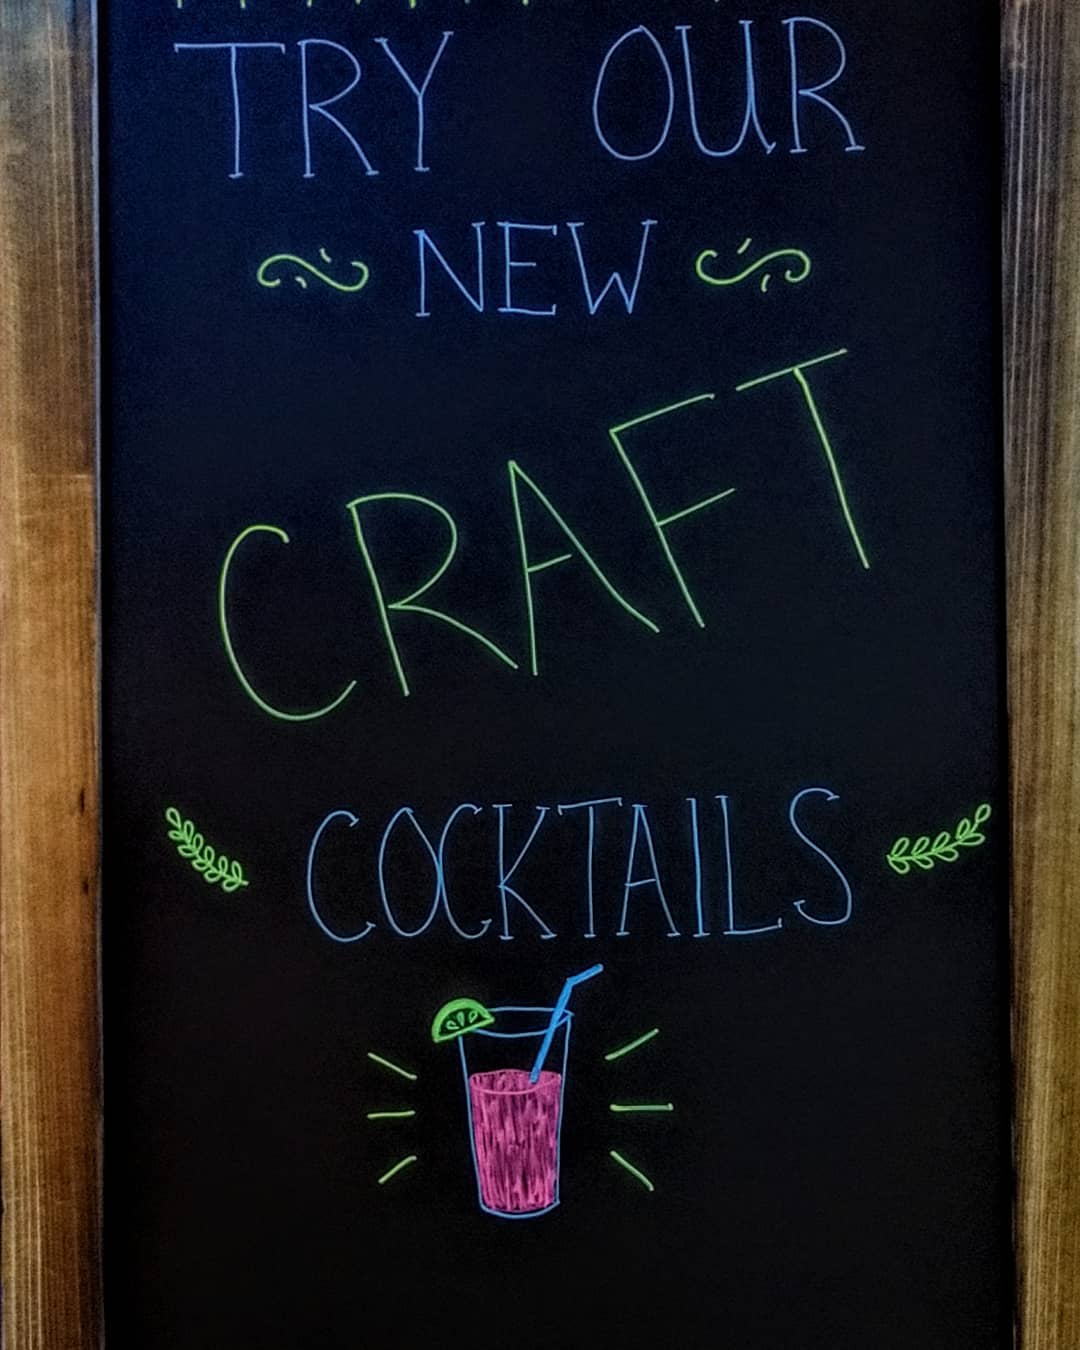 TRY OUR
NEW
CRAFT
COCKTAILS